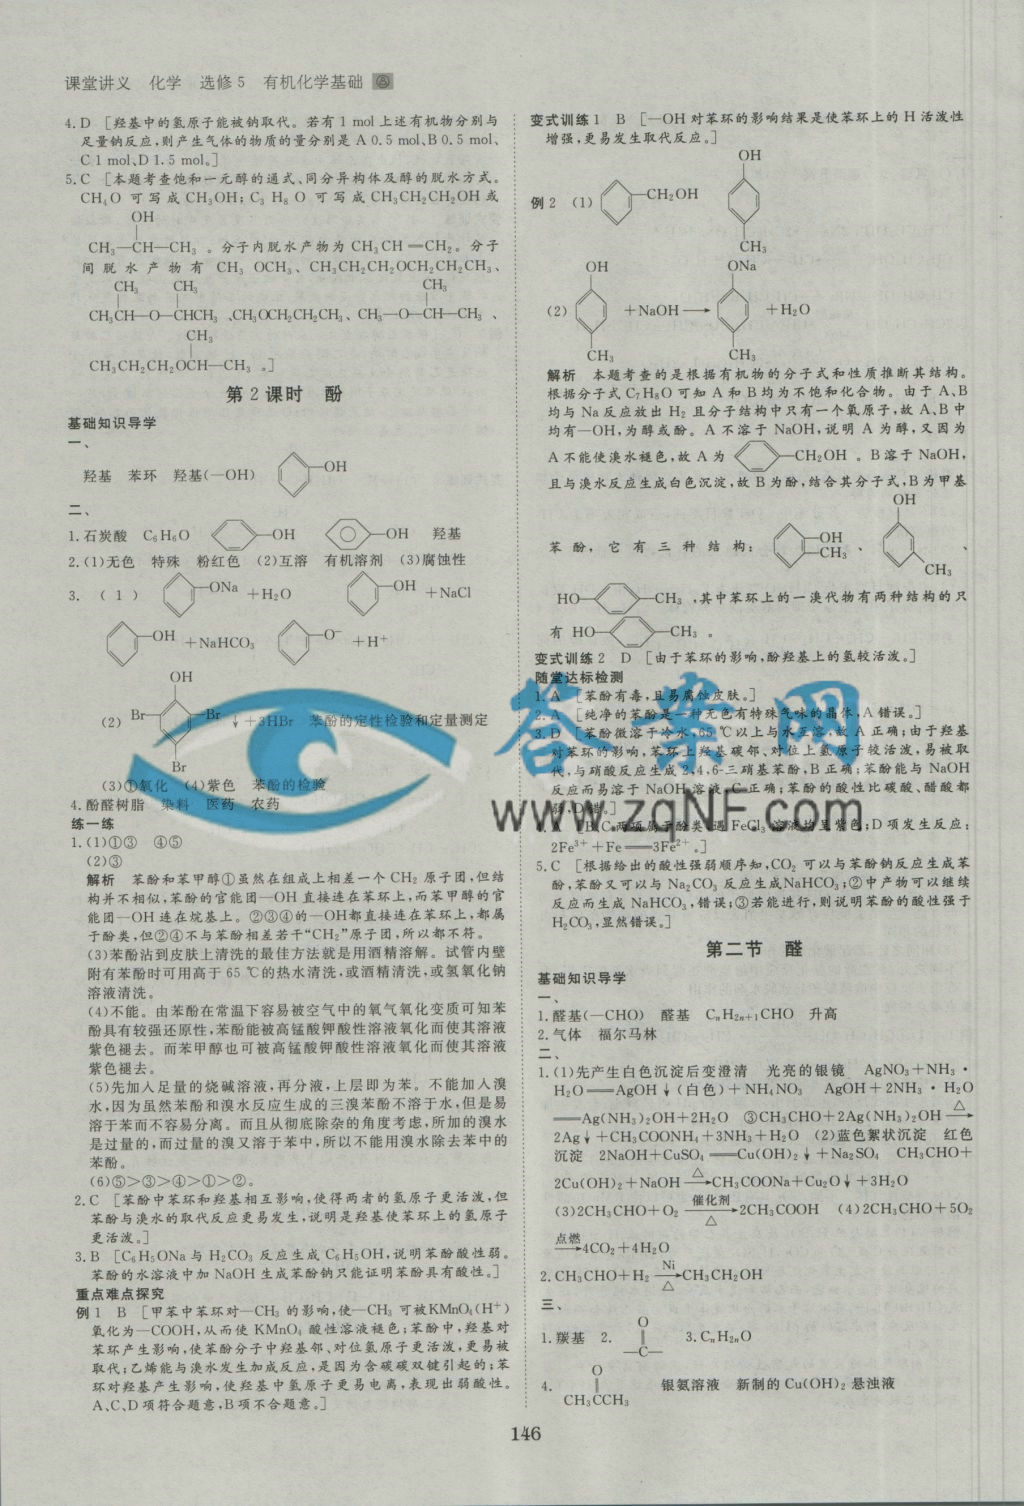 课堂讲义 化学 选修5 有机化学基础
4.D [羟基中的氢原子能被钠取代。若有1 mol上述有机物分别与
足量钠反应,则产生气体的物质的量分别是A 0.5 mol、B 0.5 mol、
C 1 mol、D 1.5 mol。]
5.C [本题考查饱和一元醇的通式、同分异构体及醇的脱水方式。
CH₄O 可写成 CH₃OH;C₃H₈O 可写成 CH₃CH₂CH₂OH或
OH
CH₃—CH—CH₃ 。分子内脱水产物为 CH₃CH═CH₂。分子
间脱水产物有 CH₃OCH₃、CH₃CH₂CH₂OCH₂CH₂CH₃、
CH₃ CH₃ CH₃
CH₃CH—O—CHCH₃、CH₃OCH₂CH₂CH₃、CH₃—O—CH—CH₃、
CH₃
CH₃CH₂CH₂OCH—CH₃ 。]
第2课时 酚
基础知识导学
一、
羟基 苯环 羟基(—OH) —OH
二、
1.石炭酸 C₆H₆O —OH —OH 羟基
2.(1)无色 特殊 粉红色 (2)互溶 有机溶剂 (3)腐蚀性
3.(1) —ONa +H₂O —OH +NaCl
—OH +NaHCO₃ —O⁻ +H⁺
OH
(2) Br— —Br ↓+3HBr 苯酚的定性检验和定量测定
Br
(3)①氧化 (4)紫色 苯酚的检验
4.酚醛树脂 染料 医药 农药
练一练
1.(1)①③ ④⑤
(2)③
解析 苯酚和苯甲醇①虽然在组成上相差一个CH₂原子团,但结
构并不相似,苯酚的官能团—OH直接连在苯环上,而苯甲醇的官
能团—OH连在烷基上。②③④的—OH都直接连在苯环上,都属
于酚类,但②④不与苯酚相差若干“CH₂”原子团,所以都不符。
(3)苯酚沾到皮肤上清洗的最佳方法就是用酒精溶解。试管内壁
附有苯酚时可用高于65 ℃的热水清洗,或酒精清洗,或氢氧化钠
溶液清洗。
(4)不能。由苯酚在常温下容易被空气中的氧气氧化变质可知苯
酚具有较强还原性,苯酚能被高锰酸钾酸性溶液氧化而使其溶液
紫色褪去。而苯甲醇也可被高锰酸钾酸性溶液氧化而使其溶液
紫色褪去。
(5)先加入足量的烧碱溶液,再分液,上层即为苯。不能加入溴
水,因为虽然苯酚和溴水反应生成的三溴苯酚不溶于水,但是易
溶于苯而不容易分离。而且从彻底除杂的角度考虑,所加的溴水
是过量的,而过量的溴又溶于苯中,所以不能用溴水除去苯中的
苯酚。
(6)⑤>③>④>①>②。
2.C [苯酚中苯环和羟基相互影响,使得两者的氢原子更活泼,但
苯酚与溴水的取代反应更易发生,说明是羟基使苯环上的氢原子
更活泼。]
3.B [C₆H₅ONa与H₂CO₃反应生成C₆H₅OH,说明苯酚酸性弱。
苯酚的水溶液中加NaOH生成苯酚钠只能证明苯酚具有酸性。]
重点难点探究
例1 B [甲苯中苯环对—CH₃的影响,使—CH₃可被KMnO₄(H⁺)
氧化为—COOH,从而使KMnO₄酸性溶液褪色;苯酚中,羟基对
苯环产生影响,使苯酚分子中羟基邻、对位氢原子更活泼,更易被
取代;乙烯能与溴水发生加成反应,是因为含碳碳双键引起的;苯
环对羟基产生影响,使羟基中氢原子更易电离,表现出弱酸性。
A、C、D项符合题意,B项不合题意。]
变式训练1 B [—OH对苯环的影响结果是使苯环上的H活泼性
增强,更易发生取代反应。]
OH
例2 (1) —CH₂OH
CH₃
OH ONa
(2) +NaOH⟶ +H₂O
CH₃ CH₃
解析 本题考查的是根据有机物的分子式和性质推断其结构。
根据分子式C₇H₈O可知A和B均为不饱和化合物。由于A、B
均与Na反应放出H₂且分子结构中只有一个氧原子,故A、B中
均有—OH,为醇或酚。A不溶于NaOH,说明A为醇,又因为
A不能使溴水褪色,故A为 —CH₂OH 。B溶于NaOH,
且与溴水反应生成白色沉淀,故B为酚,结合其分子式,B为甲基
OH
苯酚,它有三种结构: OH CH₃ 、 、
CH₃
HO— —CH₃ ,其中苯环上的一溴代物有两种结构的只
有 HO— —CH₃ 。
变式训练2 D [由于苯环的影响,酚羟基上的氢较活泼。]
随堂达标检测
1.A [苯酚有毒,且易腐蚀皮肤。]
2.A [纯净的苯酚是一种无色有特殊气味的晶体,A错误。]
3.D [苯酚微溶于冷水,65 ℃以上与水互溶,故A正确;由于羟基
对苯环的影响,苯环上羟基碳邻、对位上氢原子较活泼,易被取
代,与硝酸反应生成2,4,6-三硝基苯酚,B正确;苯酚能与NaOH
反应而易溶于NaOH溶液,C正确;苯酚的酸性比碳酸、醋酸都
弱,D错。]
4.A [B、C两项属于酚类,遇FeCl₃溶液均呈紫色;D项发生反应:
2Fe³⁺+Fe═3Fe²⁺。]
5.C [根据给出的酸性强弱顺序知,CO₂可以与苯酚钠反应生成苯
酚,苯酚又可以与Na₂CO₃反应生成NaHCO₃;②中产物可以继续
反应而生成NaHCO₃,错误;③若能进行,则说明苯酚的酸性强于
H₂CO₃,显然错误。]
第二节 醛
基础知识导学
一、
1.醛基(—CHO) 醛基 CₙH₂ₙ₊₁CHO 升高
2.气体 福尔马林
二、
1.(1)先产生白色沉淀后变澄清 光亮的银镜 AgNO₃+NH₃·
H₂O═AgOH↓(白色)+NH₄NO₃ AgOH+2NH₃·H₂O
═Ag(NH₃)₂OH+2H₂O ③CH₃CHO+2Ag(NH₃)₂OH △⟶
2Ag↓+CH₃COONH₄+3NH₃+H₂O (2)蓝色絮状沉淀 红色
沉淀 2NaOH+CuSO₄═Cu(OH)₂↓+Na₂SO₄ CH₃CHO+
2Cu(OH)₂+NaOH △⟶CH₃COONa+Cu₂O↓+3H₂O
(3)2CH₃CHO+O₂ 催化剂⟶△ 2CH₃COOH (4)2CH₃CHO+5O₂
点燃⟶4CO₂+4H₂O
2.CH₃CHO+H₂ Ni⟶△ CH₃CH₂OH
三、
O
1.羰基 2. —C— 3.CₙH₂ₙO
O
4. CH₃CCH₃ 银氨溶液 新制的Cu(OH)₂悬浊液
146
答案网
www.zqNF.com